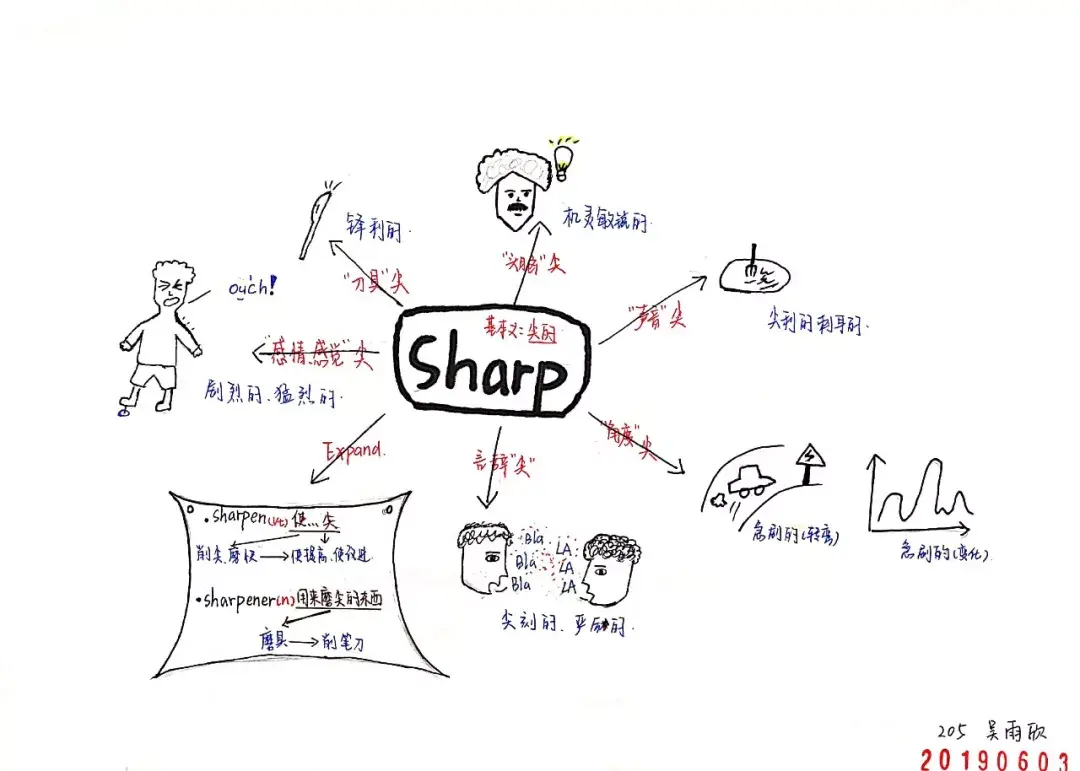 机灵敏锐的.
锋利的.
"头脑"尖
"刀具"尖
ouch!
"声音"尖
尖利的刺耳的.
基本义:尖的
Sharp
"感情、感觉"尖
剧烈的、猛烈的.
Expand.
言辞"尖"
"角度"尖
急剧的(转弯)
急剧的(变化).
.sharpen(vt) 使...尖
削尖、磨快→使提高、使改进
•sharpener(n) 用来磨尖的东西
磨具→削笔刀
Bla LA
Bla LA
Bla LA
尖刻的、严厉的.
205 吴雨欣
20190603